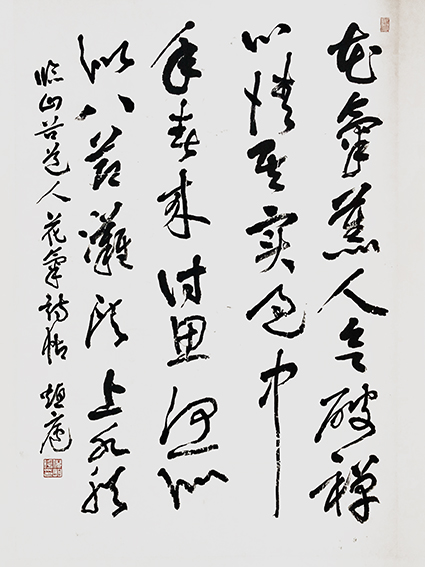 花氣薰人欲破禪
心情其實過中
年春來詩思何所
似八節灘頭上水船
臨山谷道人花氣詩帖